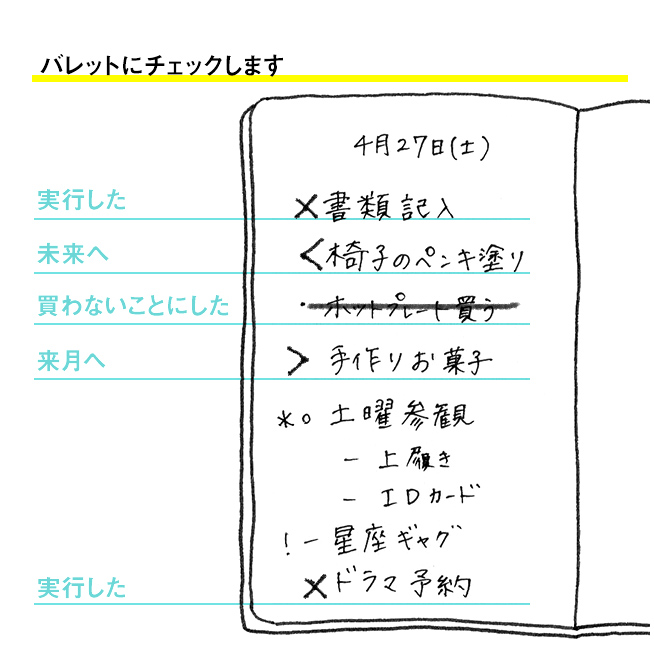 バレットにチェックします
4月27日(土)
実行した
×書類記入
未来へ
<椅子のペンキ塗り
買わないことにした
・ホットプレート買う
来月へ
> 手作りお菓子
*○ 土曜参観
- 上履き
- IDカード
! - 星座ギャグ
実行した
×ドラマ予約